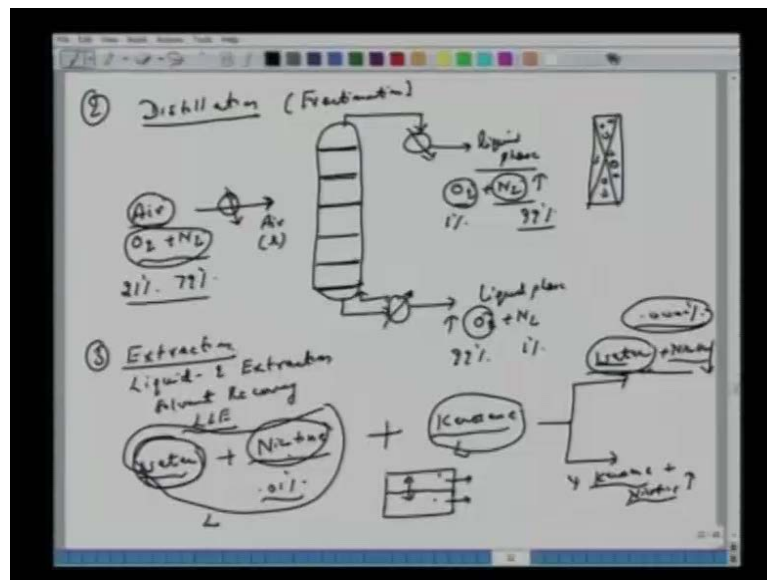 ② Distillation (Fractionation)
liquid
phase
O2 + N2 ↑
1%. 99%.
Air
O2 + N2
21%. 79%.
Air
(l)
Liquid phase
↑ O2 + N2
99%. 1%.
③ Extraction
Liquid - L Extraction
Solvent Recovery
LLE
Water + Nicotine + Kerosene
.01%.
L
L
Water + Nicotine ↓
Kerosene +
Nicotine ↑